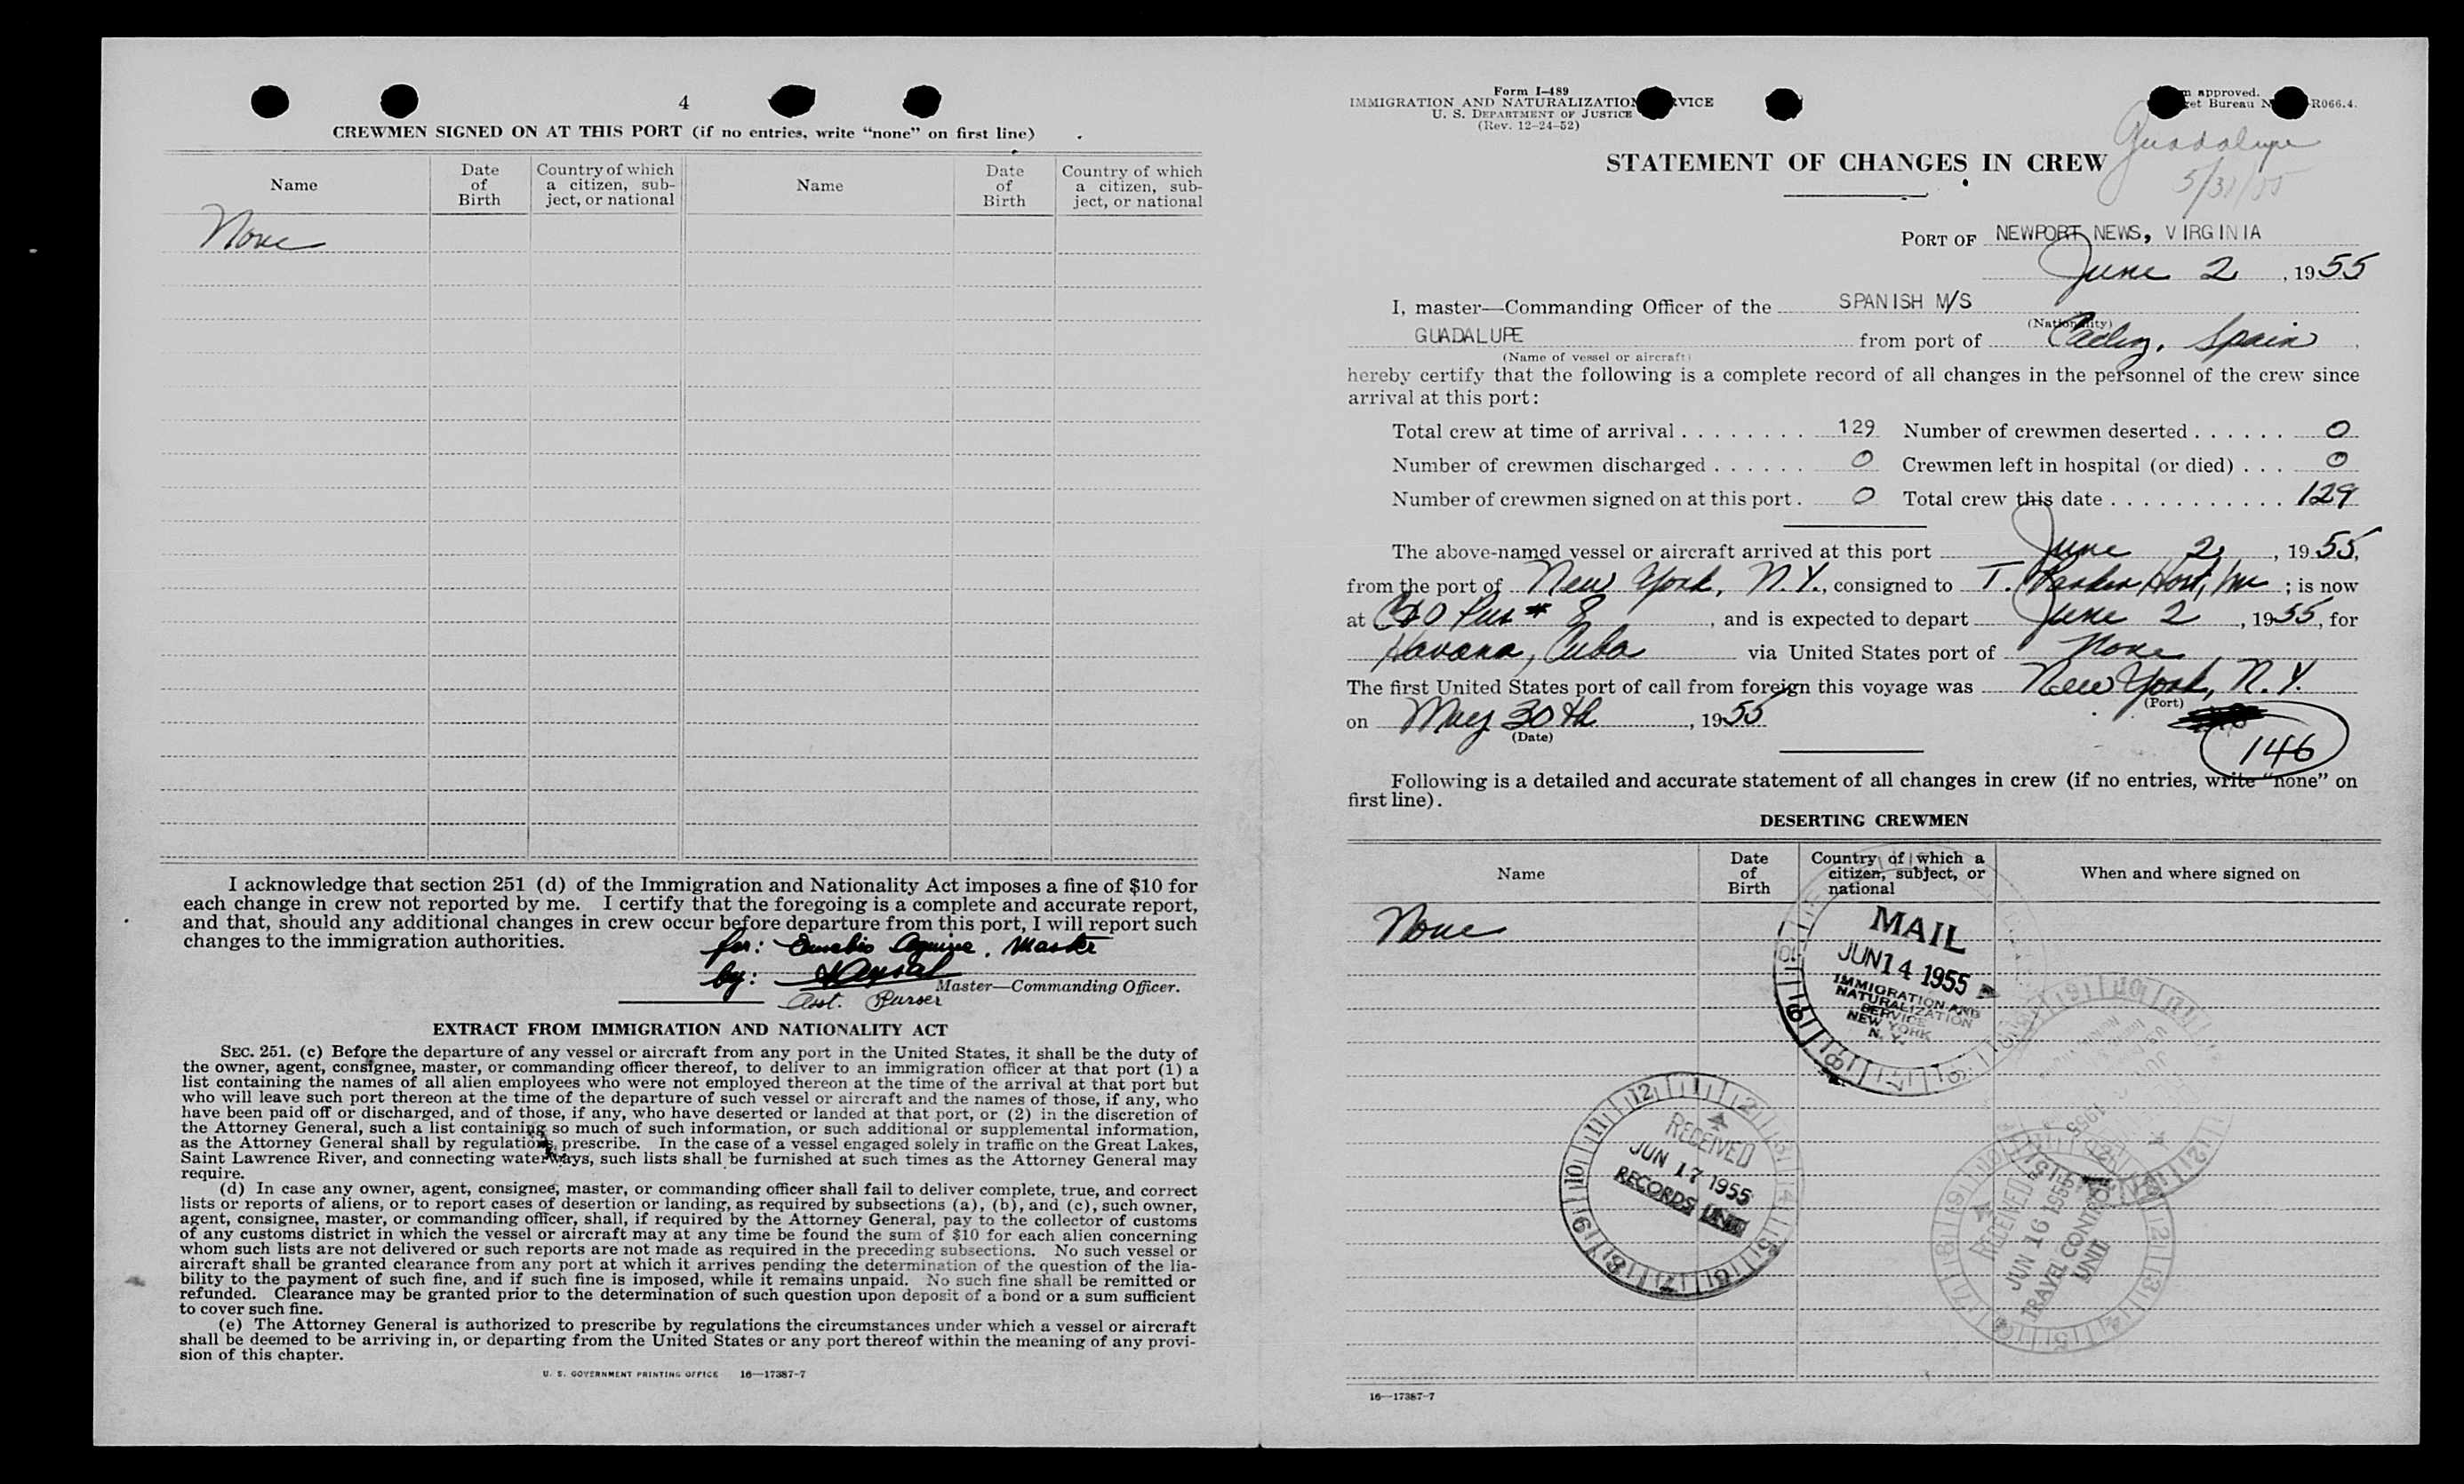 4
CREWMEN SIGNED ON AT THIS PORT (if no entries, write “none” on first line)
Name
Date of Birth
Country of which a citizen, subject, or national
Name
Date of Birth
Country of which a citizen, subject, or national
None
I acknowledge that section 251 (d) of the Immigration and Nationality Act imposes a fine of $10 for
each change in crew not reported by me. I certify that the foregoing is a complete and accurate report,
and that, should any additional changes in crew occur before departure from this port, I will report such
changes to the immigration authorities.
for: Eusebio Aguirre, Master
by:
Master—Commanding Officer.
Asst. Purser
EXTRACT FROM IMMIGRATION AND NATIONALITY ACT
SEC. 251. (c) Before the departure of any vessel or aircraft from any port in the United States, it shall be the duty of
the owner, agent, consignee, master, or commanding officer thereof, to deliver to an immigration officer at that port (1) a
list containing the names of all alien employees who were not employed thereon at the time of the arrival at that port but
who will leave such port thereon at the time of the departure of such vessel or aircraft and the names of those, if any, who
have been paid off or discharged, and of those, if any, who have deserted or landed at that port, or (2) in the discretion of
the Attorney General, such a list containing so much of such information, or such additional or supplemental information,
as the Attorney General shall by regulations prescribe. In the case of a vessel engaged solely in traffic on the Great Lakes,
Saint Lawrence River, and connecting waterways, such lists shall be furnished at such times as the Attorney General may
require.
(d) In case any owner, agent, consignee, master, or commanding officer shall fail to deliver complete, true, and correct
lists or reports of aliens, or to report cases of desertion or landing, as required by subsections (a), (b), and (c), such owner,
agent, consignee, master, or commanding officer, shall, if required by the Attorney General, pay to the collector of customs
of any customs district in which the vessel or aircraft may at any time be found the sum of $10 for each alien concerning
whom such lists are not delivered or such reports are not made as required in the preceding subsections. No such vessel or
aircraft shall be granted clearance from any port at which it arrives pending the determination of the question of the lia-
bility to the payment of such fine, and if such fine is imposed, while it remains unpaid. No such fine shall be remitted or
refunded. Clearance may be granted prior to the determination of such question upon deposit of a bond or a sum sufficient
to cover such fine.
(e) The Attorney General is authorized to prescribe by regulations the circumstances under which a vessel or aircraft
shall be deemed to be arriving in, or departing from the United States or any port thereof within the meaning of any provi-
sion of this chapter.
U. S. GOVERNMENT PRINTING OFFICE 16—17387-7
Form I-489
IMMIGRATION AND NATURALIZATION SERVICE
U. S. DEPARTMENT OF JUSTICE
(Rev. 12-24-52)
approved.
Bureau R066.4.
Guadalupe
5/31/55
STATEMENT OF CHANGES IN CREW
PORT OF NEWPORT NEWS, VIRGINIA
June 2, 1955
I, master—Commanding Officer of the SPANISH M/S
(Nationality)
GUADALUPE from port of Cadiz, Spain,
(Name of vessel or aircraft)
hereby certify that the following is a complete record of all changes in the personnel of the crew since
arrival at this port:
Total crew at time of arrival 129 Number of crewmen deserted 0
Number of crewmen discharged 0 Crewmen left in hospital (or died) 0
Number of crewmen signed on at this port 0 Total crew this date 129
The above-named vessel or aircraft arrived at this port June 2, 1955,
from the port of New York, N.Y., consigned to T. Parker Host, Inc ; is now
at C&O Pier # 8, and is expected to depart June 2, 1955, for
Havana, Cuba via United States port of None
The first United States port of call from foreign this voyage was New York, N.Y.
(Port)
on May 30th, 1955
(Date)
146
Following is a detailed and accurate statement of all changes in crew (if no entries, write “none” on
first line).
DESERTING CREWMEN
Name
Date of Birth
Country of which a citizen, subject, or national
When and where signed on
None
MAIL
JUN 14 1955
IMMIGRATION AND
NATURALIZATION
SERVICE
NEW YORK
N. Y.
RECEIVED
JUN 17 1955
RECORDS UNIT
RECEIVED
JUN 16 1955
TRAVEL CONTROL
UNIT
16—17387-7